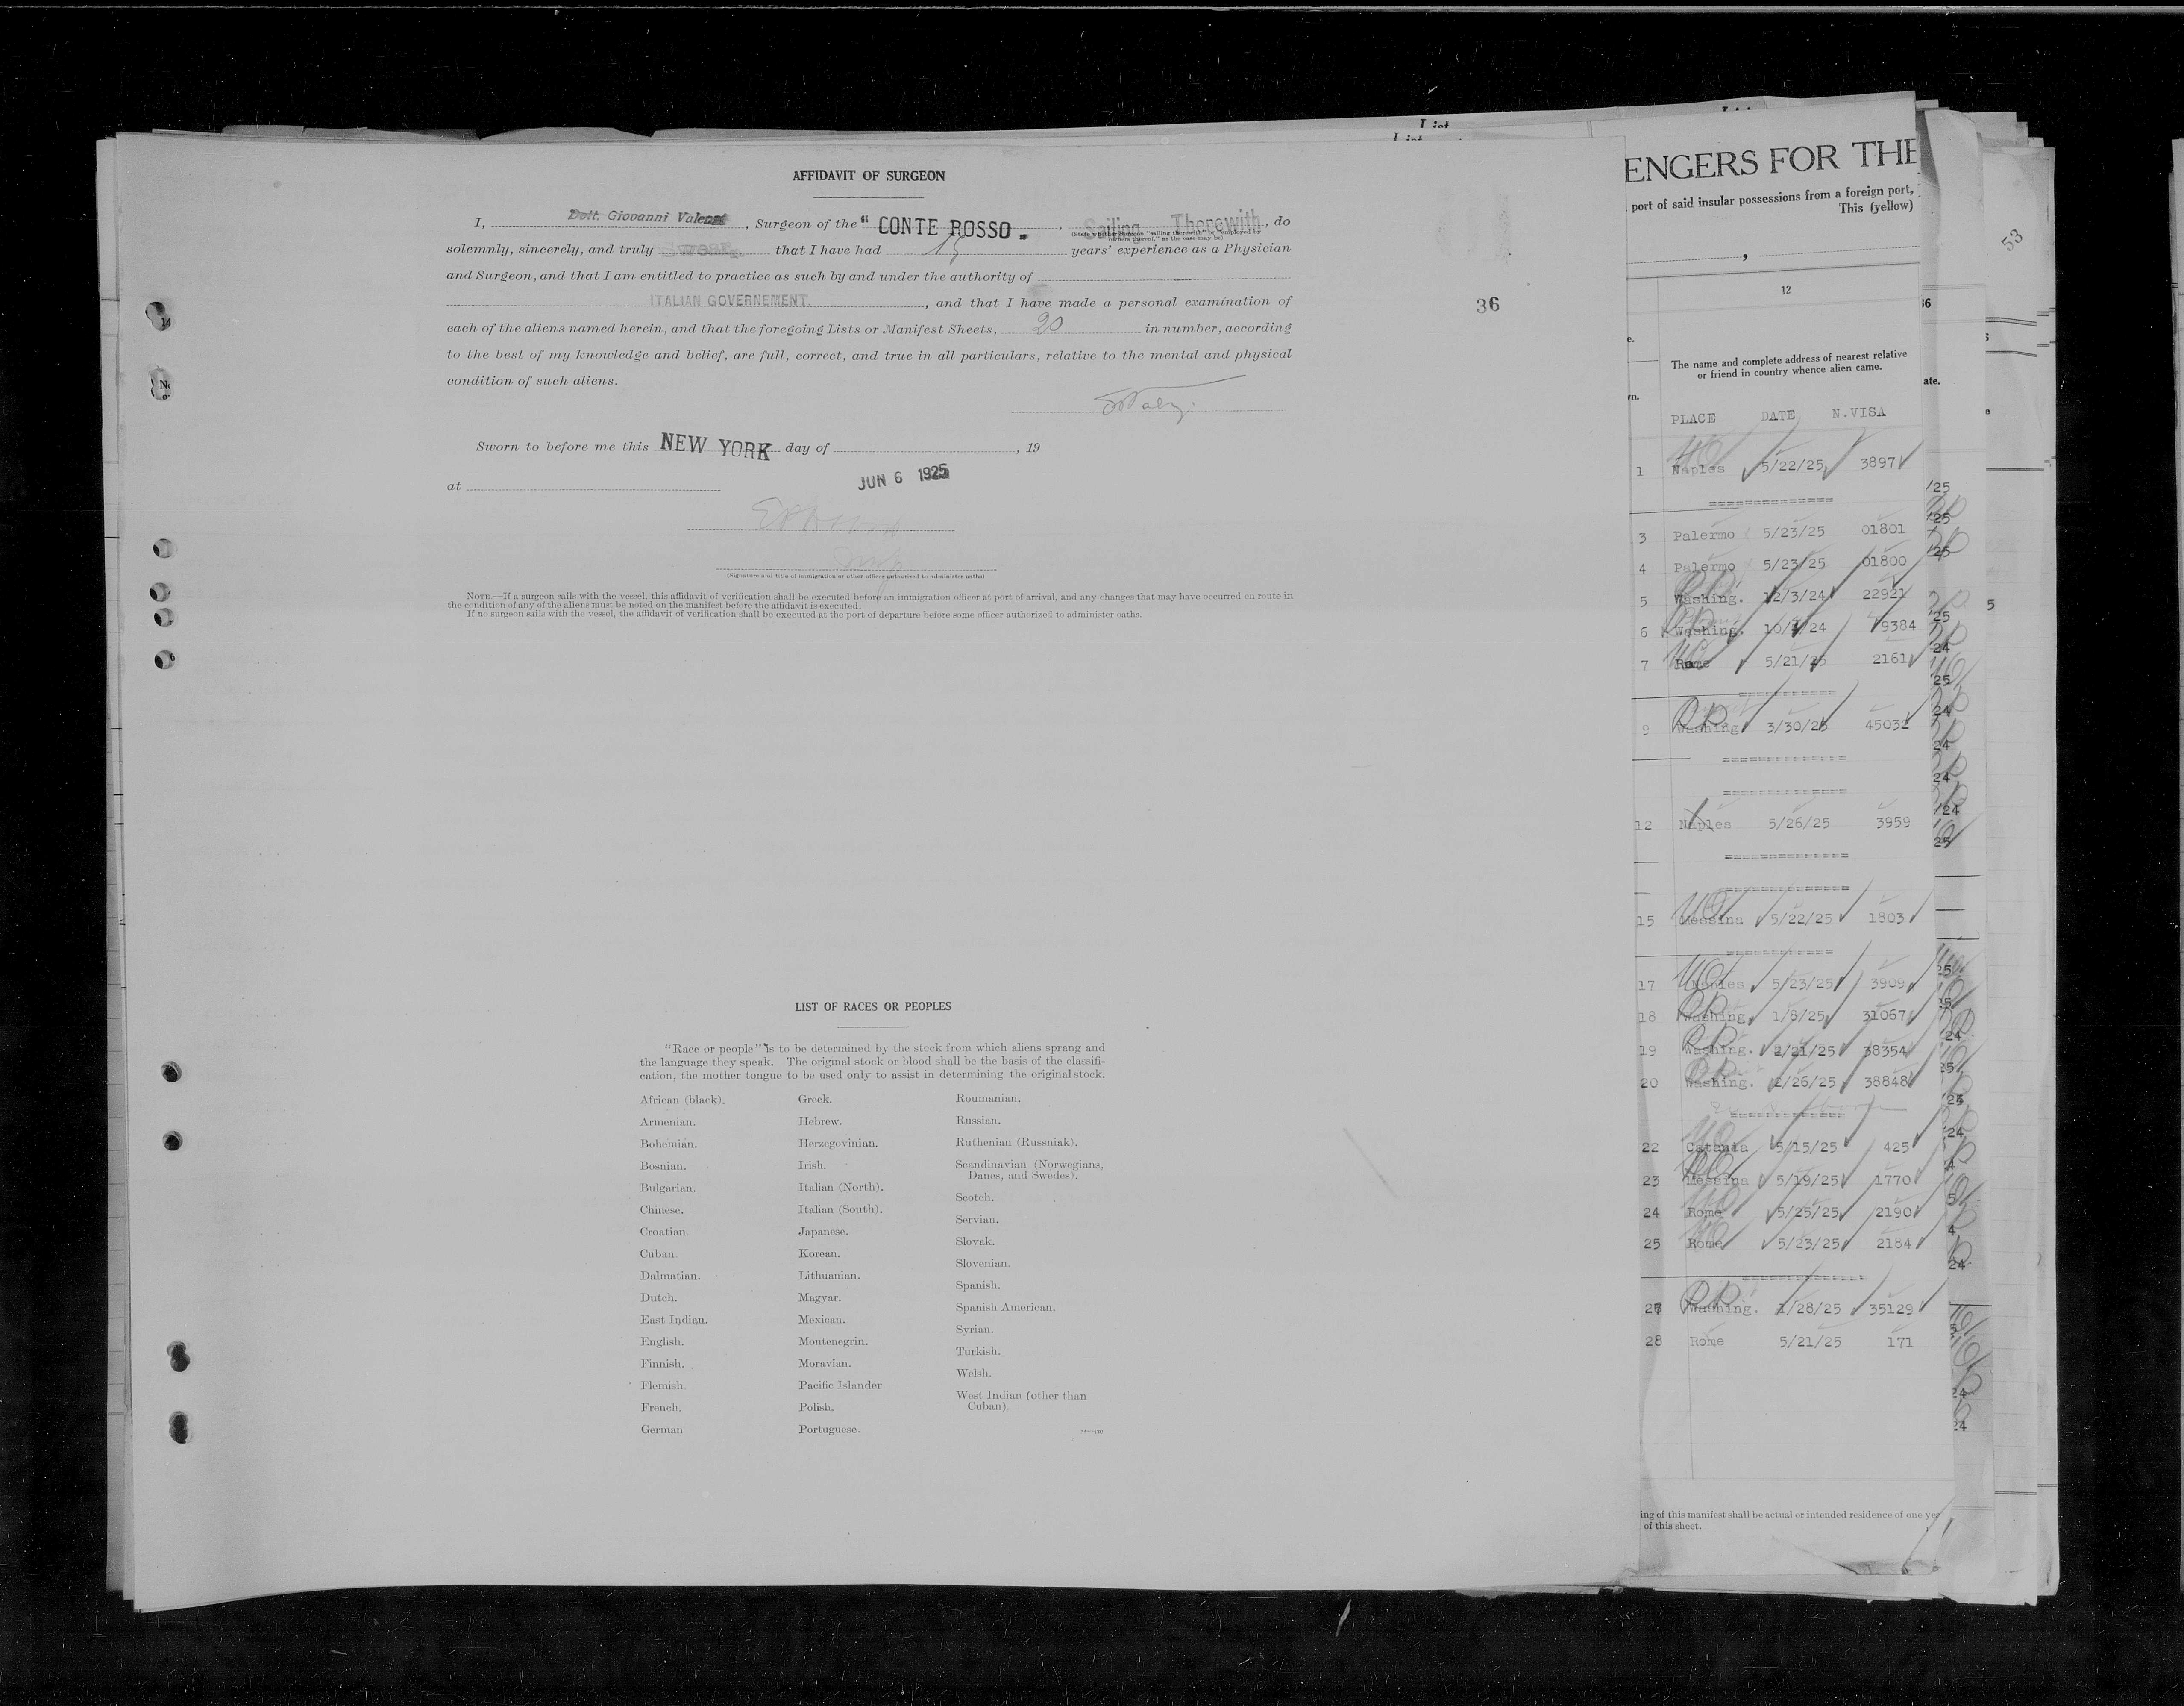 AFFIDAVIT OF SURGEON
I, Dott. Giovanni , Surgeon of the "CONTE ROSSO." , Sailing Therewith, do
(State whether surgeon "sailing therewith" or "employed by
owners thereof," as the case may be)
solemnly, sincerely, and truly swear that I have had years' experience as a Physician
and Surgeon, and that I am entitled to practice as such by and under the authority of
ITALIAN GOVERNEMENT. , and that I have made a personal examination of
each of the aliens named herein, and that the foregoing Lists or Manifest Sheets, 20 in number, according
to the best of my knowledge and belief, are full, correct, and true in all particulars, relative to the mental and physical
condition of such aliens.
36
Sworn to before me this NEW YORK day of , 19
at JUN 6 1925
(Signature and title of immigration or other officer authorized to administer oaths)
NOTE.—If a surgeon sails with the vessel, this affidavit of verification shall be executed before an immigration officer at port of arrival, and any changes that may have occurred en route in
the condition of any of the aliens must be noted on the manifest before the affidavit is executed.
If no surgeon sails with the vessel, the affidavit of verification shall be executed at the port of departure before some officer authorized to administer oaths.
LIST OF RACES OR PEOPLES
"Race or people" is to be determined by the stock from which aliens sprang and
the language they speak. The original stock or blood shall be the basis of the classifi-
cation, the mother tongue to be used only to assist in determining the original stock.
African (black).
Armenian.
Bohemian.
Bosnian.
Bulgarian.
Chinese.
Croatian.
Cuban.
Dalmatian.
Dutch.
East Indian.
English.
Finnish.
Flemish.
French.
German
Greek.
Hebrew.
Herzegovinian.
Irish.
Italian (North).
Italian (South).
Japanese.
Korean.
Lithuanian.
Magyar.
Mexican.
Montenegrin.
Moravian.
Pacific Islander
Polish.
Portuguese.
Roumanian.
Russian.
Ruthenian (Russniak).
Scandinavian (Norwegians,
Danes, and Swedes).
Scotch.
Servian.
Slovak.
Slovenian.
Spanish.
Spanish American.
Syrian.
Turkish.
Welsh.
West Indian (other than
Cuban).
ENGERS FOR THE
port of said insular possessions from a foreign port,
This (yellow)
53
12
The name and complete address of nearest relative
or friend in country whence alien came.
PLACE DATE N.VISA
1 Naples 5/22/25 3897
3 Palermo 5/23/25 01801
4 Palermo 5/23/25 01800
5 Washing. 12/3/24 22921
6 Washing. 10/ /24 9384
7 Rome 5/21/25 2161
9 Washing 3/30/25 45032
12 Naples 5/26/25 3959
15 Messina 5/22/25 1803
17 Naples 5/23/25 3909
18 Washing. 1/8/25 31067
19 Washing. 2/21/25 38354
20 Washing. 2/26/25 38848
22 Catania 5/15/25 425
23 Messina 5/19/25 1770
24 Rome 5/25/25 2190
25 Rome 5/23/25 2184
27 Washing. 1/28/25 35129
28 Rome 5/21/25 171
ing of this manifest shall be actual or intended residence of one yea
of this sheet.